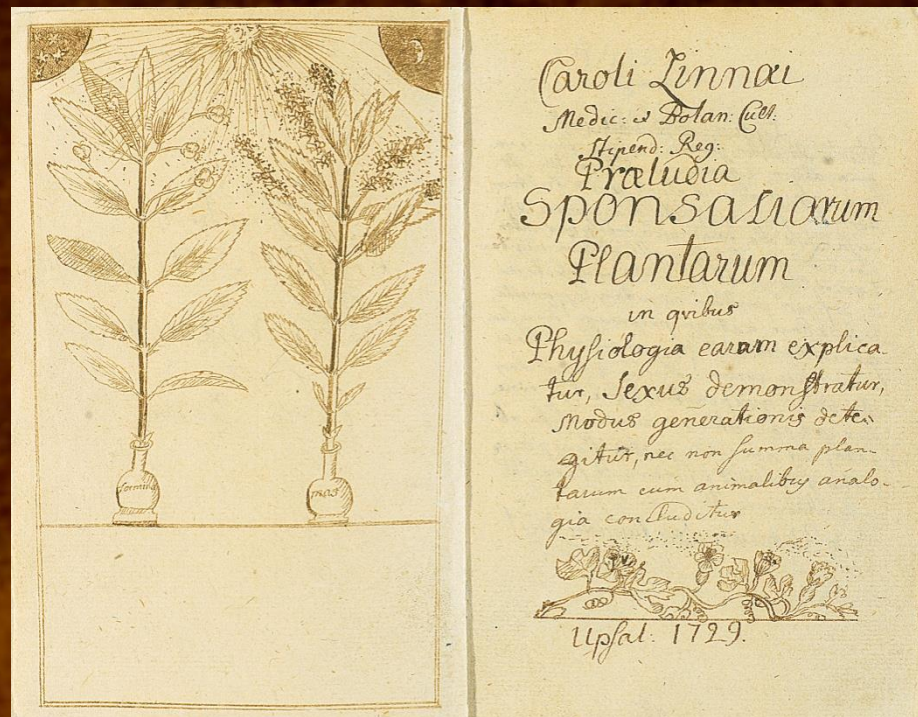 femina
mas
Caroli Linnæi
Medic: et Botan: Cult:
Stipend: Reg:
Præludia
Sponsaliarum
Plantarum
in qvibus
Physiologia earum explica-
tur, Sexus demonstratur,
Modus generationis dete-
gitur, nec non summa plan-
tarum cum animalibus analo-
gia concluditur
Upsal: 1729.